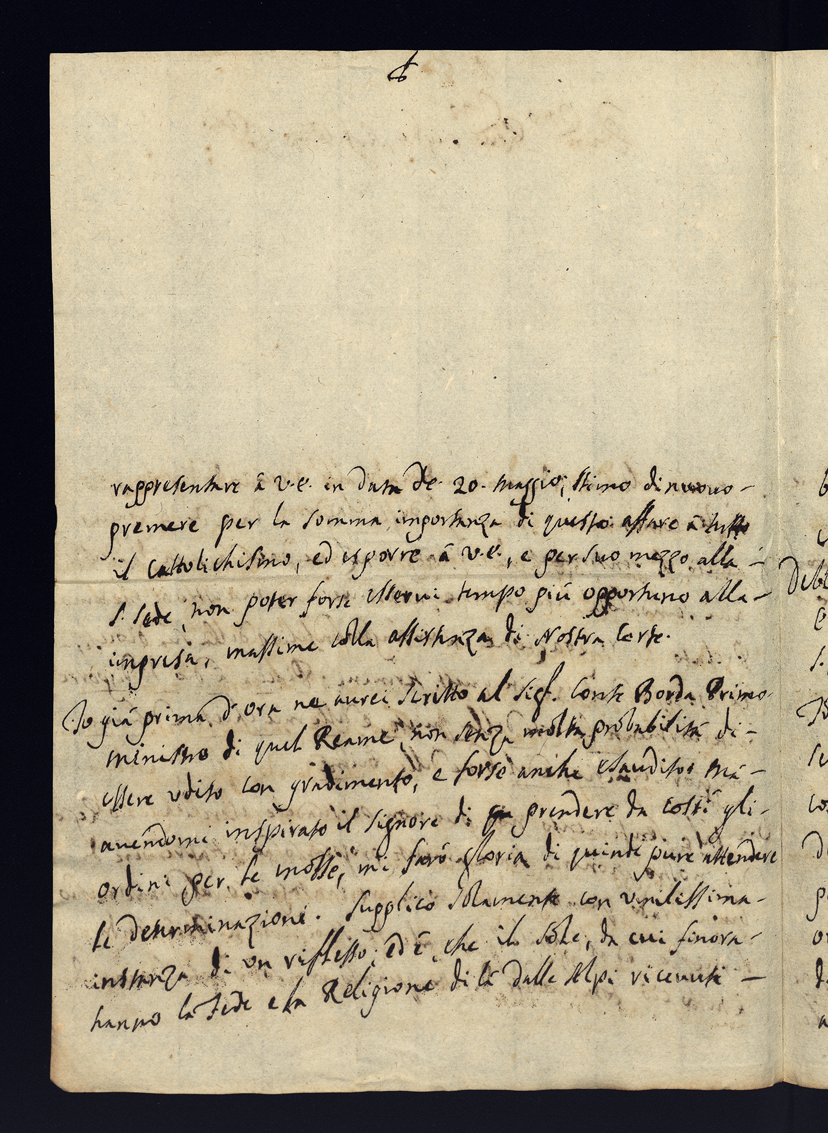 rappresentare à V.E. in data de 20. Maggio; stimo di nuovo
premere per la somma importanza di questo affare à tutto
il Cattolichismo, ed esporre à V.E., e per suo mezzo alla
S. Sede, non poter forse esservi tempo più opportuno alla
impresa, massime colla assistenza di Nostra Corte.
Io già prima d'ora ne aurei scritto al Sigr. Conte Borda Primo
Ministro di quel Reame, non senza molta probabilità di
essere udito con gradimento, e forse anche esaudito: Mà
avendomi inspirato il Signore di prendere da costì gli
ordini per le mosse, mi farò gloria di quindi pure attendere
le determinazioni. Supplico solamente con umilissima
instanza di un riflesso, ed è, che il Sole, da cui finora
hanno la Fede e la Religione di là dalle Alpi ricevuti